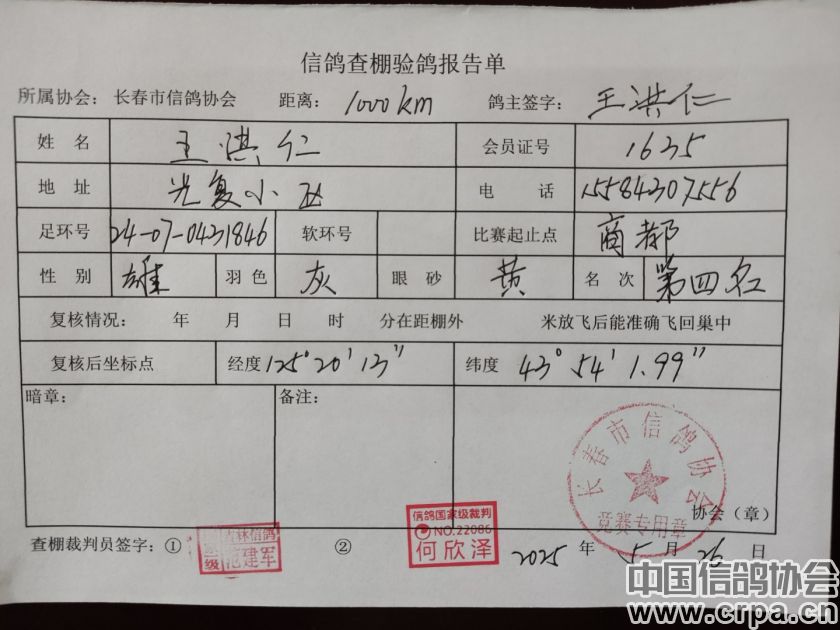 信鸽查棚验鸽报告单
所属协会：长春市信鸽协会 距离：1000km 鸽主签字：王洪仁
姓名 王洪仁 会员证号 1635
地址 光复小区 电话 15584307556
足环号 24-07-0431846 软环号 比赛起止点 商都
性别 雄 羽色 灰 眼砂 黄 名次 第四名
复核情况： 年 月 日 时 分在距棚外 米放飞后能准确飞回巢中
复核后坐标点 经度 125°20'13" 纬度 43°54'1.99"
暗章： 备注：
长春市信鸽协会
竞赛专用章
协会（章）
查棚裁判员签字：① 吉林信鸽 级 范建军 ② 信鸽国家级裁判 NO.22086 何欣泽
2025年5月26日
中国信鸽协会
www.crpa.cn